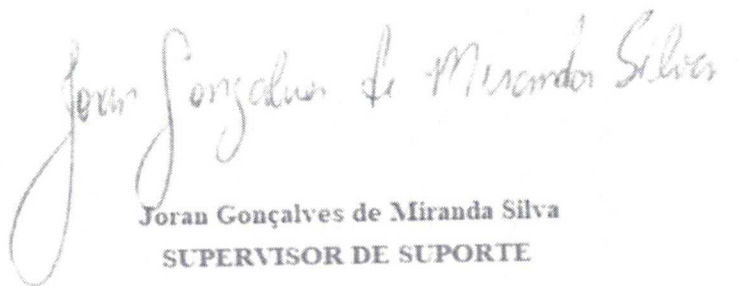 Joran Gonçalves de Miranda Silva
Joran Gonçalves de Miranda Silva
SUPERVISOR DE SUPORTE